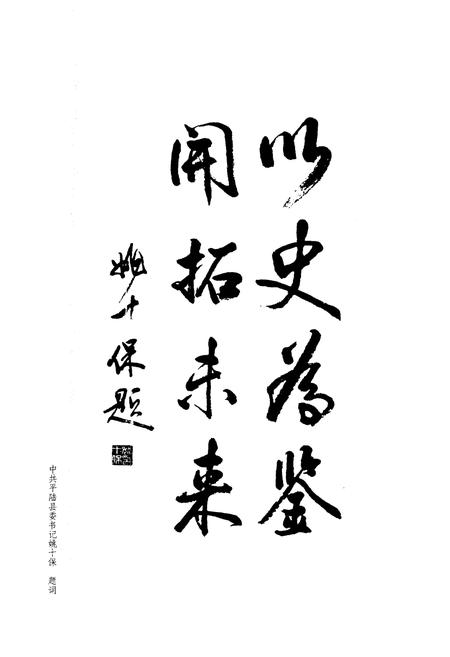 以史為鉴
開拓未来
姚十保题
中共平陆县委书记姚十保 题词